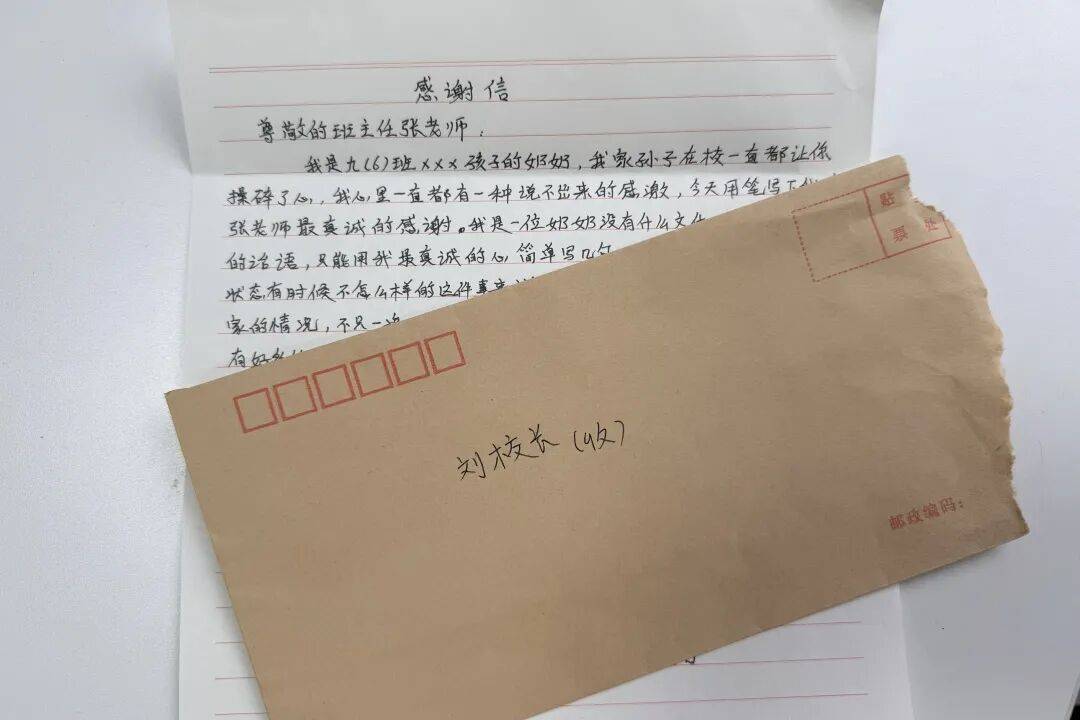 感谢信
尊敬的班主任张老师：
我是九(6)班×××孩子的奶奶，我家孙子在校一直都让你
操碎了心，我心里一直都有一种说不出来的感激，今天用笔写下
张老师最真诚的感谢。我是一位奶奶没有什么文
的话语，只能用我最真诚的心简单写几
状态有时候不怎么样的这件事
家的情况，不只一
有好
贴
票 处
刘校长(收)
邮政编码：